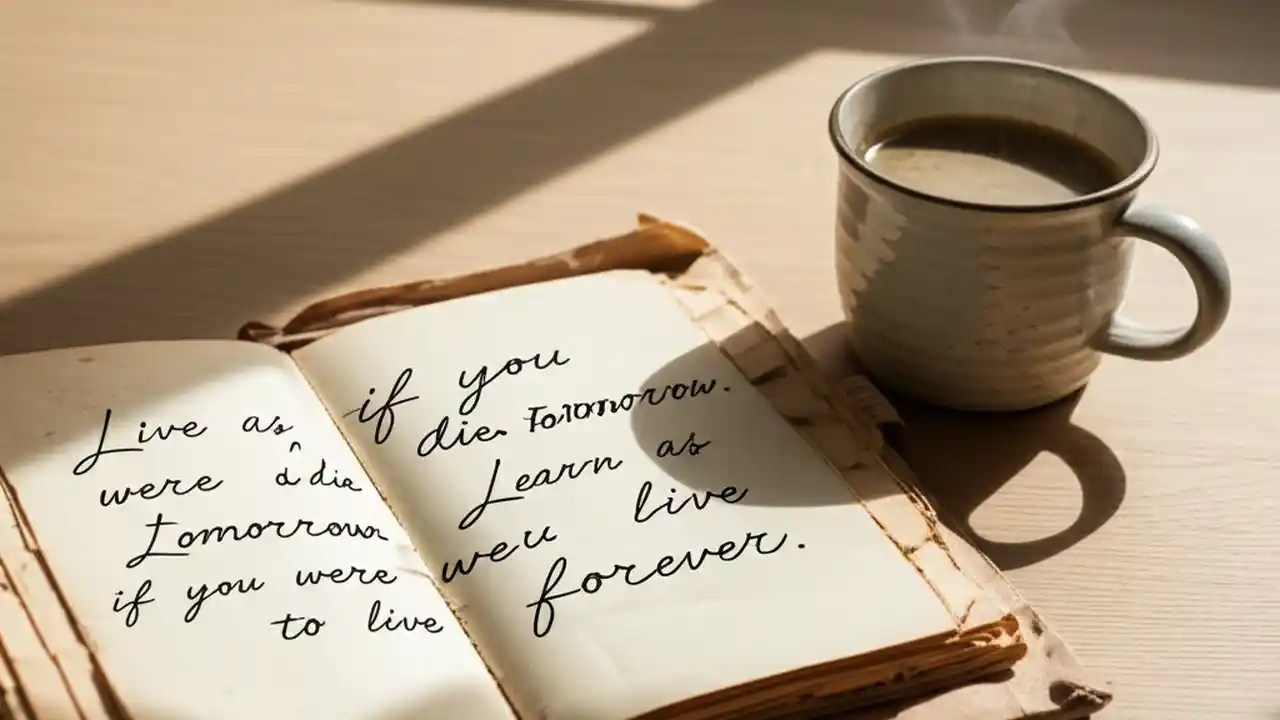 Live as
were ^ d die
tomorrow
if you were
to live
if you
die. Tomorrow.
Learn as
weu live
forever.